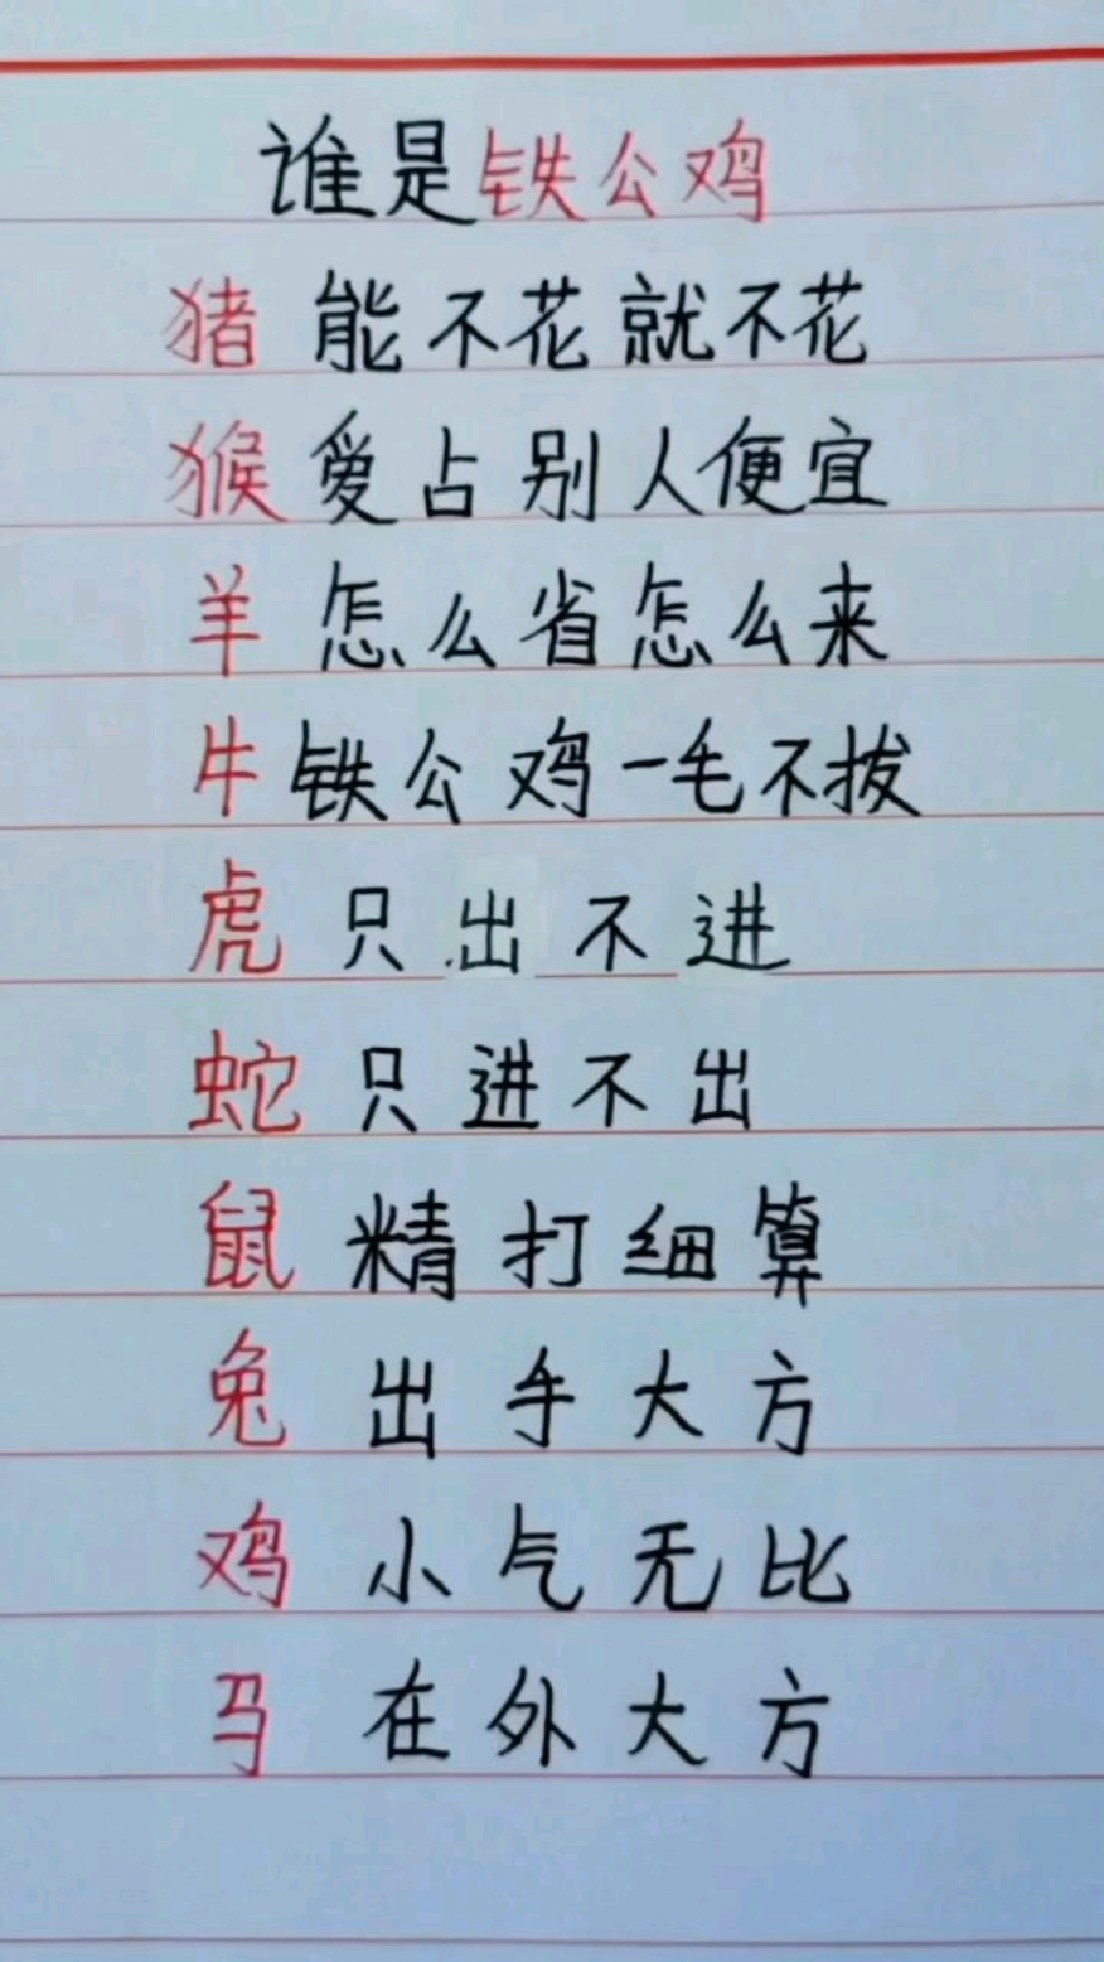 谁是铁公鸡
猪 能不花就不花
猴 爱占别人便宜
羊 怎么省怎么来
牛 铁公鸡一毛不拔
虎 只出不进
蛇 只进不出
鼠 精打细算
兔 出手大方
鸡 小气无比
马 在外大方